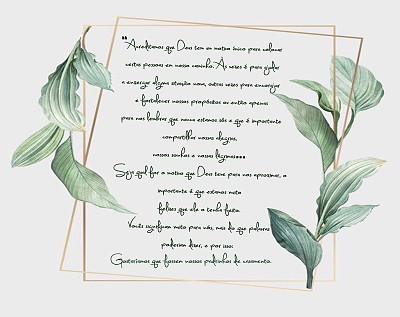 "Acreditamos que Deus tem um motivo único para colocar
certas pessoas em nosso caminho. Às vezes é para ajudar
a enxergar alguma situação ruim, outras vezes para encorajar
e fortalecer nossos propósitos ou então apenas
para nos lembrar que nunca estamos sós e que é importante
compartilhar nossas alegrias,
nossos sonhos e nossas lágrimas...
Seja qual for o motivo que Deus teve para nos aproximar, o
importante é que estamos
felizes que ele o tenha feito.
Vocês significam muito para nós, mais do que palavras
poderiam dizer, e por isso:
Gostaríamos que fossem nossos padrinhos de casamento.